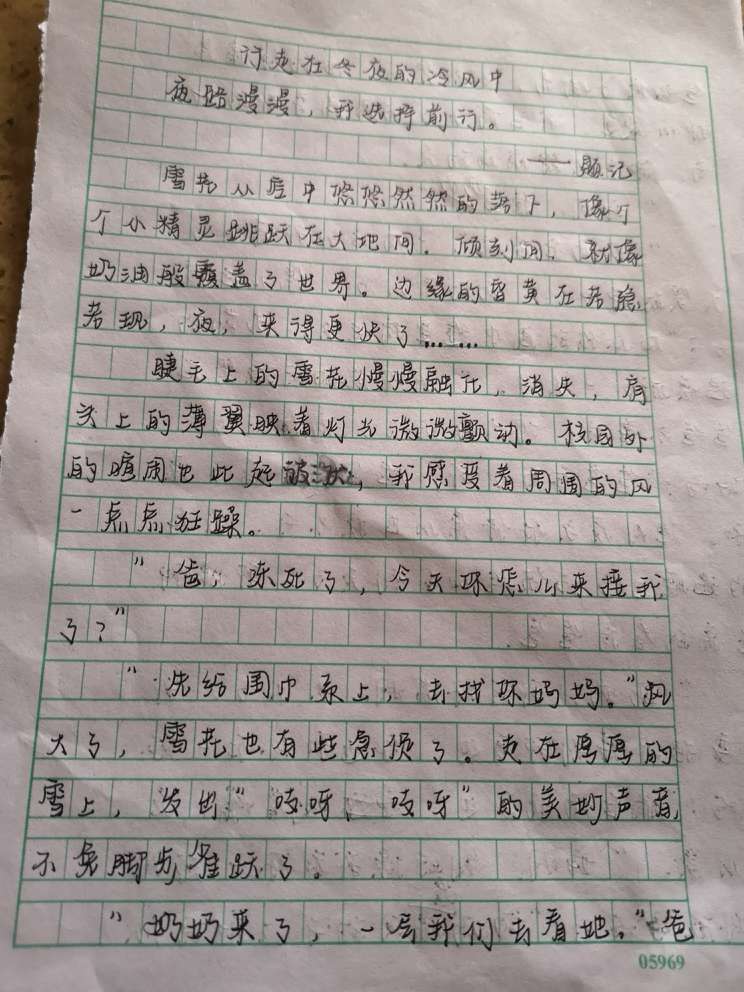 行走在冬夜的冷风中
夜路漫漫，我选择前行。
——题记
雪花从空中悠悠然然的落下，像个
个小精灵跳跃在大地间。顷刻间，就像
奶油般覆盖了世界。边缘的昏黄在若隐
若现，夜，来得更快了……
睫毛上的雪花慢慢融化，消失，肩
头上的薄翼映着灯光微微颤动。校园外
的喧闹也此起彼伏，我感受着周围的风
一点点狂躁。
"爸，冻死了，今天环怎么来接我
了？"
"先给围巾系上，去找环妈妈。"风
大了，雪花也有些急促了。走在厚厚的
雪上，发出"吱呀、吱呀"的美妙声音，
不免脚步雀跃了。
"奶奶来了，一会我们去看她。"爸
05969